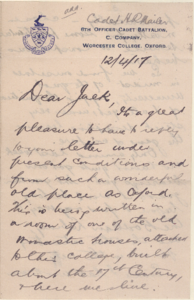 Cadet H. R.
6TH OFFICER CADET BATTALION,
C. COMPANY,
WORCESTER COLLEGE, OXFORD.
12/4/17
Dear Jack,
It's a great
pleasure to have to reply
to your letter under
present conditions and
from such a wonderful
old place as Oxford.
This is being written in
a room of one of the old
monastic houses, attached
to this college, built
about the 17th Century,
where we live.